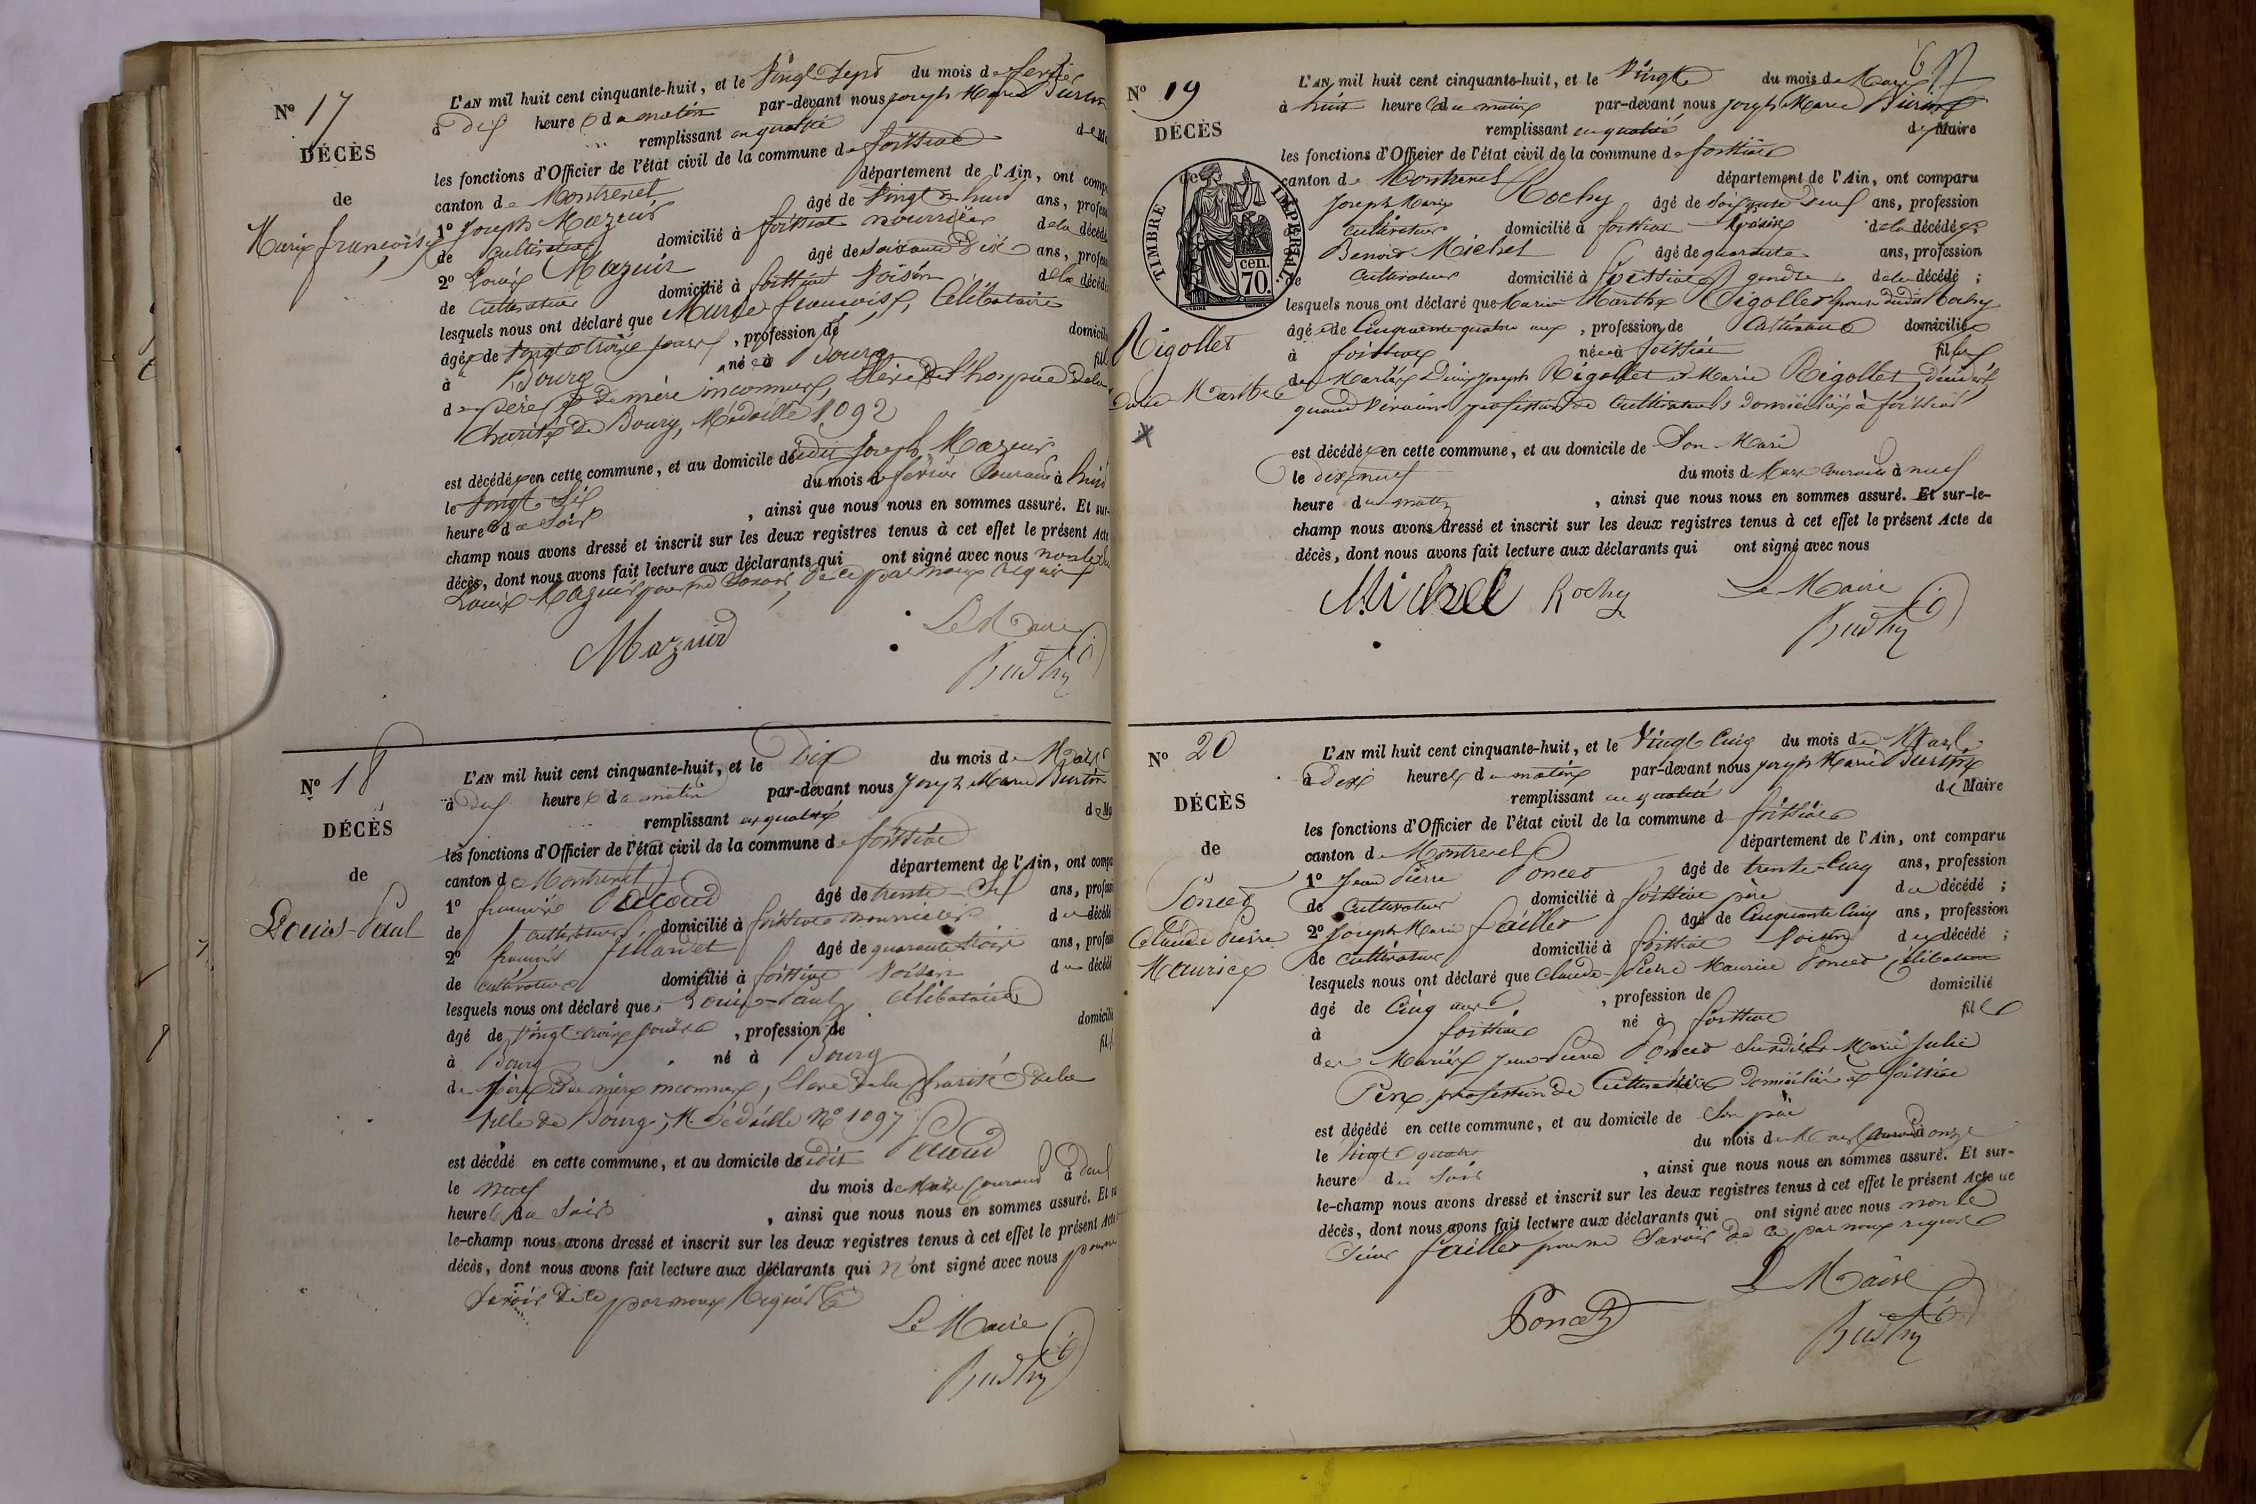 N° 17
DÉCÈS
de
Marie françoise
L'AN mil huit cent cinquante-huit, et le Vingt Sept du mois de fevrier
à Dix heures du matin par-devant nous Joseph Marie Burtin
remplissant en qualité de Ma
les fonctions d'Officier de l'état civil de la commune de foissiat
canton de Montrevel département de l'Ain, ont comp
1° Joseph Mazuir âgé de Vingt huit ans, profess
de Cultivateur domicilié à foissiat nourricier de la décédé
2° Louis Mazuir âgé de Soixante Dix ans, profess
de Cultivateur domicilié à foissiat Voisin de la décédé
lesquels nous ont déclaré que Marie françoise, Célibataire
âgée de Vingt trois jours , profession de domicilié
à Bourg née à Bourg fil
de père et de mère inconnus, Elève de l'hospice de la
Charité de Bourg, Médaille 1092
est décédée en cette commune, et au domicile dudit Joseph Mazuir
le Vingt Six du mois de fevrier Courant à huit
heures du Soir , ainsi que nous nous en sommes assuré. Et sur-
champ nous avons dressé et inscrit sur les deux registres tenus à cet effet le présent Acte
décès, dont nous avons fait lecture aux déclarants qui ont signé avec nous non le dit
Louis Mazuir pour ne Savoir de ce par nous requis
Mazuir
Le Maire
Burtin
N° 18
DÉCÈS
de
Louis-Paul
L'AN mil huit cent cinquante-huit, et le Dix du mois de Mars
à Dix heures du matin par-devant nous Joseph Marie Burtin
remplissant en qualité de Ma
les fonctions d'Officier de l'état civil de la commune de foissiat
canton de Montrevel département de l'Ain, ont compa
1° françois Pacoud âgé de trente Six ans, profess
de Cultivateur domicilié à foissiat nourricier du décédé
2° françois fillardet âgé de quarante trois ans, profess
de cultivateur domicilié à foissiat Voisin du décédé
lesquels nous ont déclaré que Louis-Paul, Célibataire
âgé de Vingt trois jours , profession de domicilié
à Bourg né à Bourg fil
de père et de mère inconnus, Elève de la Charité de la
Ville de Bourg, Médaille N° 1097
est décédé en cette commune, et au domicile dudit Pacoud
le neuf du mois de Mars Courant à
heures du Soir , ainsi que nous nous en sommes assuré. Et su
le-champ nous avons dressé et inscrit sur les deux registres tenus à cet effet le présent Acte
décès, dont nous avons fait lecture aux déclarants qui n'ont signé avec nous pour ne
Savoir de ce par nous Requis
Le Maire
Burtin
N° 19
DÉCÈS
de
TIMBRE IMPÉRIAL
70 cen.
Rigollet
Marthe
L'AN mil huit cent cinquante-huit, et le Vingt du mois de Mars
à huit heures du matin par-devant nous Joseph Marie Burtin
remplissant en qualité de Maire
les fonctions d'Officier de l'état civil de la commune de foissiat
canton de Montrevel département de l'Ain, ont comparu
Joseph Marie Rochy âgé de Soixante Deux ans, profession
cultivateur domicilié à foissiat de la décédée;
Benoit Michel âgé de quarante ans, profession
de Cultivateur domicilié à foissiat gendre de la décédé ;
lesquels nous ont déclaré que Marie Marthe Rigollet Epouse dudit Rochy
âgée de Cinquante quatre ans , profession de Cultivateur domiciliée
à foissiat née à foissiat fille
de Mariés Denis Joseph Rigollet et Marie Rigollet Décédés
quand Vivaient profession de Cultivateurs Domiciliés à foissiat
est décédée en cette commune, et au domicile de Son Mari
le dix neuf du mois de Mars Courant à neuf
heure du matin , ainsi que nous nous en sommes assuré. Et sur-le-
champ nous avons dressé et inscrit sur les deux registres tenus à cet effet le présent Acte de
décès, dont nous avons fait lecture aux déclarants qui ont signé avec nous
Michel Rochy Le Maire
Burtin
N° 20
DÉCÈS
de
Poncet
Claude Pierre
Maurice
L'AN mil huit cent cinquante-huit, et le Vingt Cinq du mois de Mars
à Dix heures du matin par-devant nous Joseph Marie Burtin
remplissant en qualité de Maire
les fonctions d'Officier de l'état civil de la commune d foissiat
canton de Montrevel département de l'Ain, ont comparu
1° Jean Pierre Poncet âgé de trente Cinq ans, profession
de Cultivateur domicilié à foissiat père du décédé ;
2° Joseph Marie faillet âgé de Cinquante Cinq ans, profession
de Cultivateur domicilié à foissiat Voisin du décédé ;
lesquels nous ont déclaré que Claude-Pierre Maurice Poncet Célibataire
âgé de Cinq ans , profession de domicilié
à foissiat né à foissiat fils
de Mariés Jean Pierre Poncet Susdit et Marie Julie
Pérex profession de Cultivateurs Domiciliés à foissiat
est décédé en cette commune, et au domicile de Son père
le Vingt quatre du mois de Mars Courant à onze
heure du Soir , ainsi que nous nous en sommes assuré. Et sur-
le-champ nous avons dressé et inscrit sur les deux registres tenus à cet effet le présent Acte de
décès, dont nous avons fait lecture aux déclarants qui ont signé avec nous non le
Sieur faillet pour ne Savoir de ce par nous requis
Le Maire
Poncet
Burtin